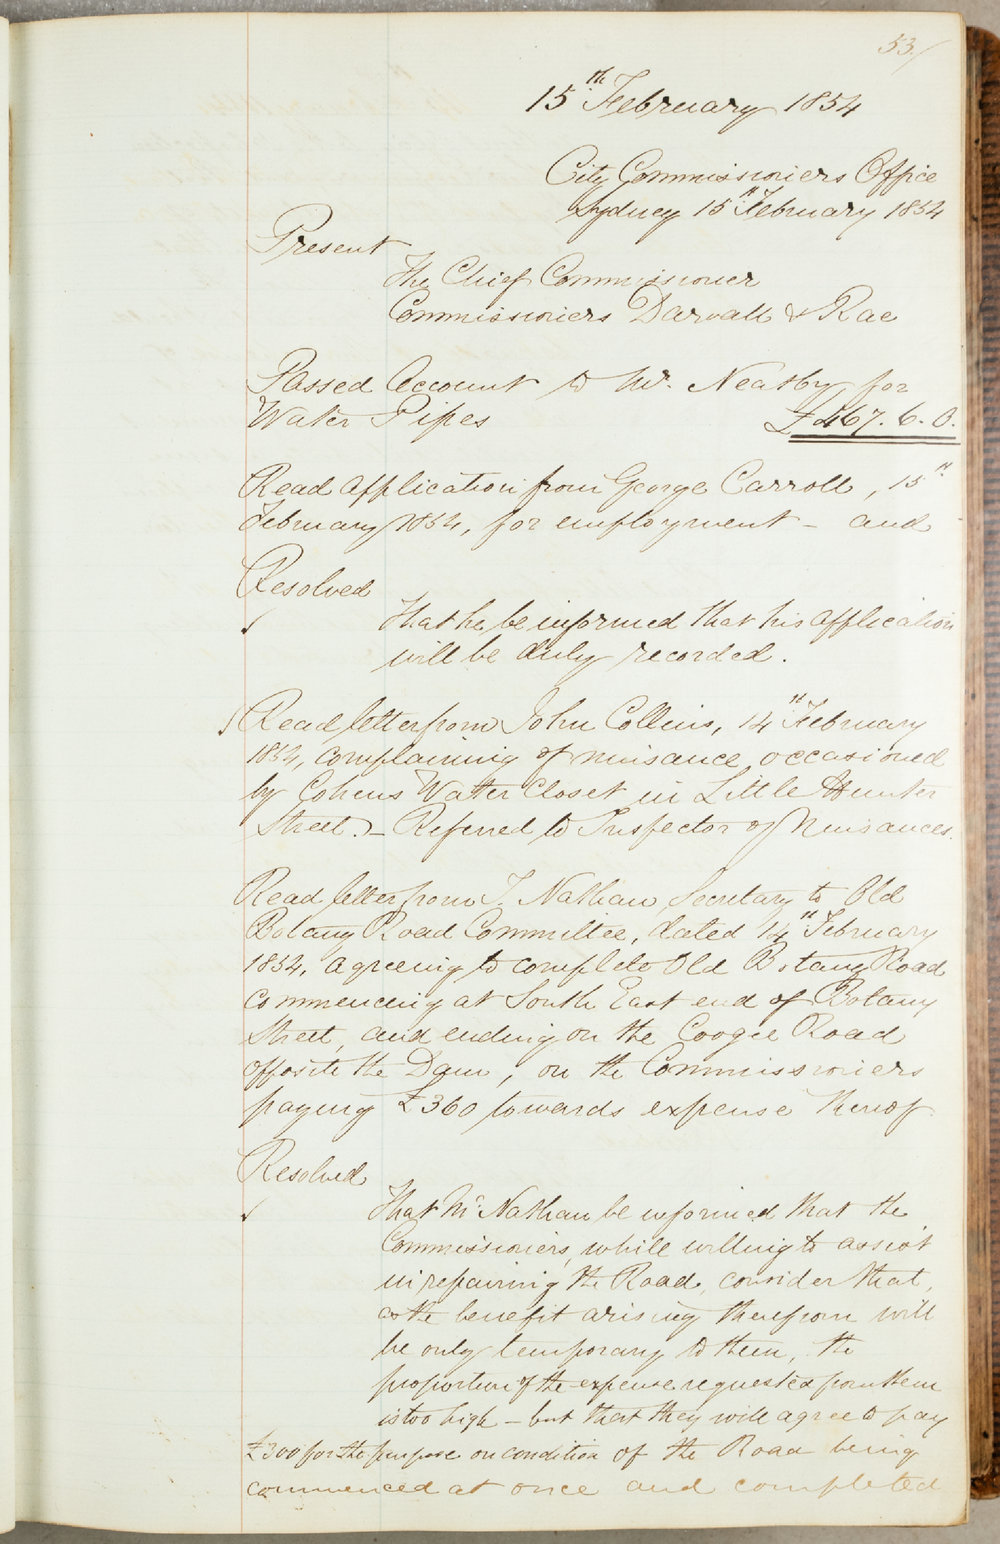 53/
15th February 1854
City Commissioners Office
Sydney 15th February 1854
Present
The Chief Commissioner
Commissioners Darvall & Rae
Passed Account to Mr. Neatby for
Water Pipes £467. 6. 0.
Read Application from George Carroll, 15th
February 1854, for employment - and
Resolved
That he be informed that his application
will be duly recorded.
Read letter from John Collins, 14th February
1854, complaining of nuisance occasioned
by Cohens Water Closet in Little Hunter
Street. - Referred to Inspector of Nuisances.
Read letter from J. Nathan Secretary to Old
Botany Road Committee, dated 14th February
1854, agreeing to complete Old Botany Road
commencing at South East end of Botany
Street, and ending on the Coogee Road
opposite the Dam, on the Commissioners
paying £360 towards expense thereof
Resolved
That Mr Nathan be informed that the
Commissioners, while willing to assist
in repairing the Road, consider that,
as the benefit arising therefrom will
be only temporary to them, the
proportion of the expense requested from them
is too high - but that they will agree to pay
£300 for the purpose on condition of the Road being
commenced at once and completed